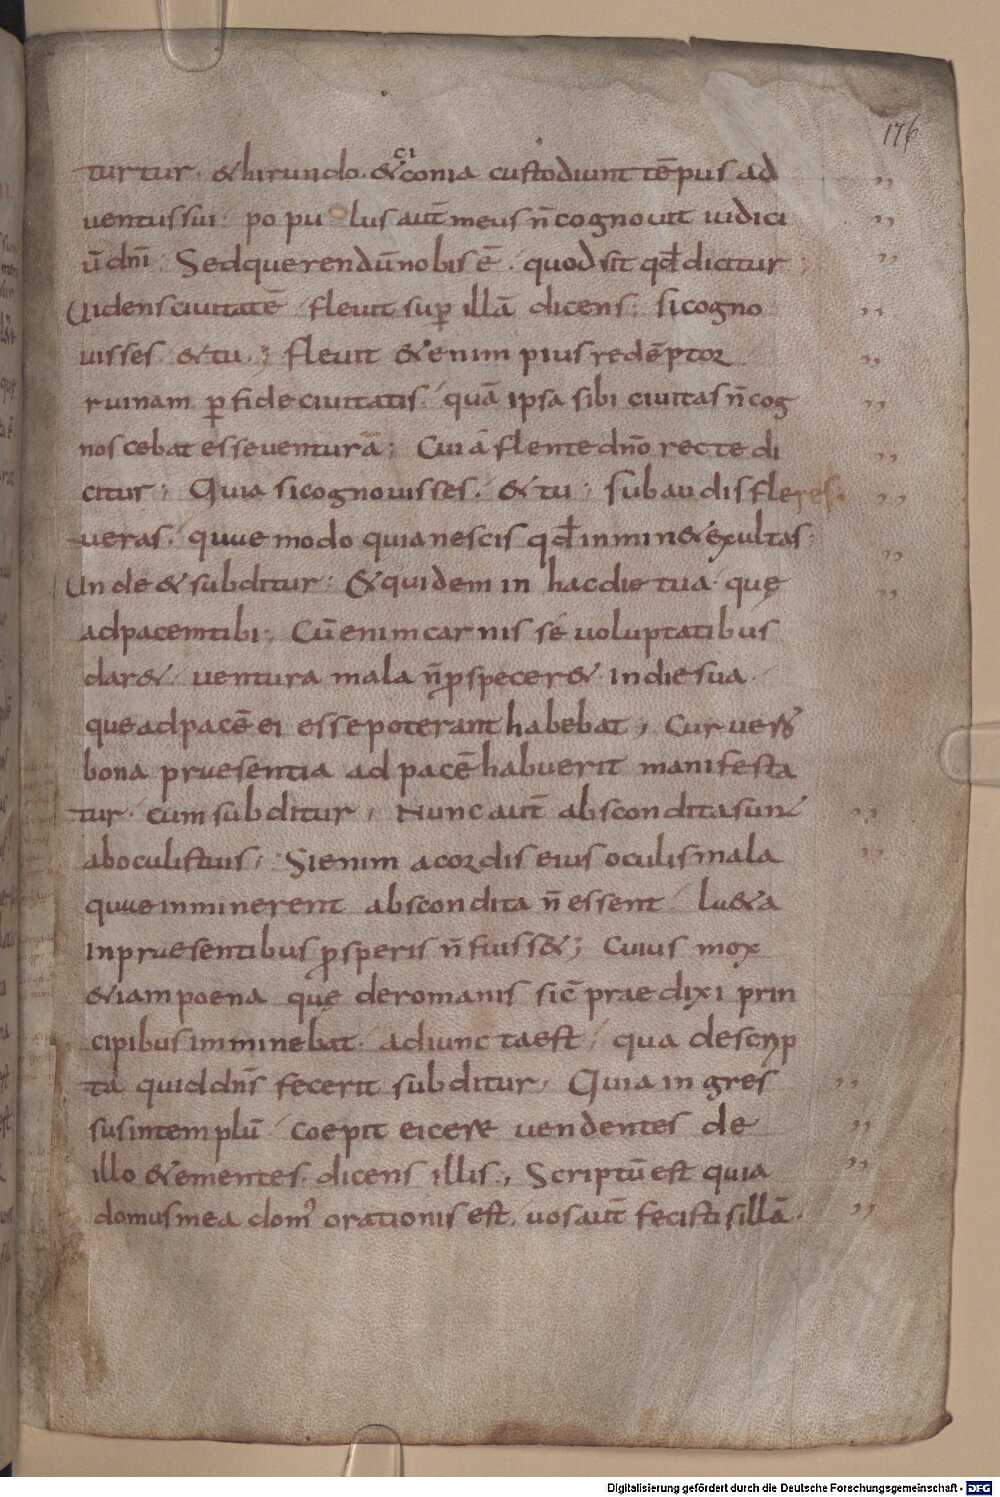 176
turtur · & hirundo · & ciconia custodiunt tēpus ad
uentus sui · populus aut̄ meus n̄ cognouit iudici
ū dn̄i ; Sed querendū nobis ē · quod sit qđ dicitur ;
Uidens ciuitatē fleuit sup̱ illā dicens ; si cogno
uisses & tu ; fleuit &enim pius redēptor
ruinam p̱fide ciuitatis / quā ipsa sibi ciuitas n̄ cog
noscebat esse uenturā ; Cui á flente dn̄o recte di
citur ; Quia si cognouisses · & tu ; subaudis fleres ·
ueras · quae modo quia nescis qđ inmin& exultas ;
Unde & subditur ; & quidem in hac die tua · quę
ad pacem tibi ; Cū enim carnis sé uoluptatibus
dar& · uentura mala n̄ p̱specer& · in die sua ·
que ad pacē ei esse poterant habebat ; Cur uero
bona praesentia ad pacē habuerit manifesta
tur · cum subditur ; Nunc aut̄ abscondita sunt
ab oculis tuis ; Si enim a cordis eius oculis mala
quae inminerent abscondita n̄ essent / l&a
in praesentibus p̱speris n̄ fuiss& ; Cuius mox
&iam poena quę de romanis sic̄ praedixi prin
cipibus imminebat · adiuncta est / qua descrip
ta quid dn̄s fecerit subditur ; Quia ingres
sus in templū / coepit eicere uendentes de
illo & ementes · dicens illis ; Scriptū est quia
domus mea dom' orationis est · uos aut̄ fecistis illā ·
Digitalisierung gefördert durch die Deutsche Forschungsgemeinschaft - DFG